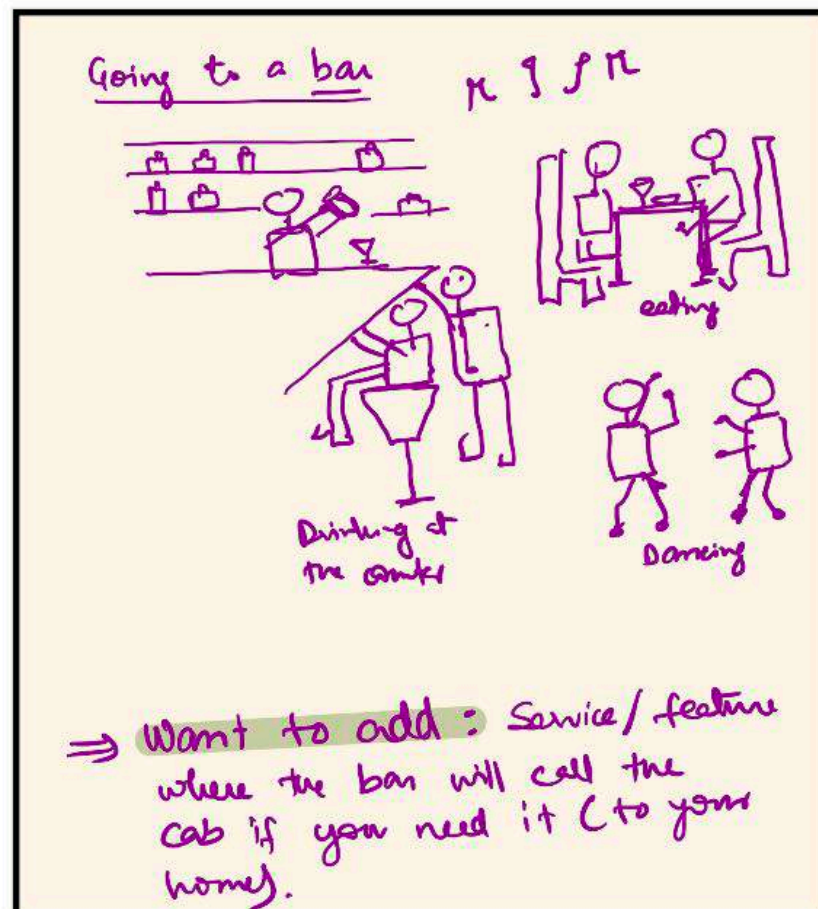 Going to a bar
eating
Drinking at
the counter
Dancing
⇒ Want to add: Service/feature
where the bar will call the
cab if you need it (to your
home).